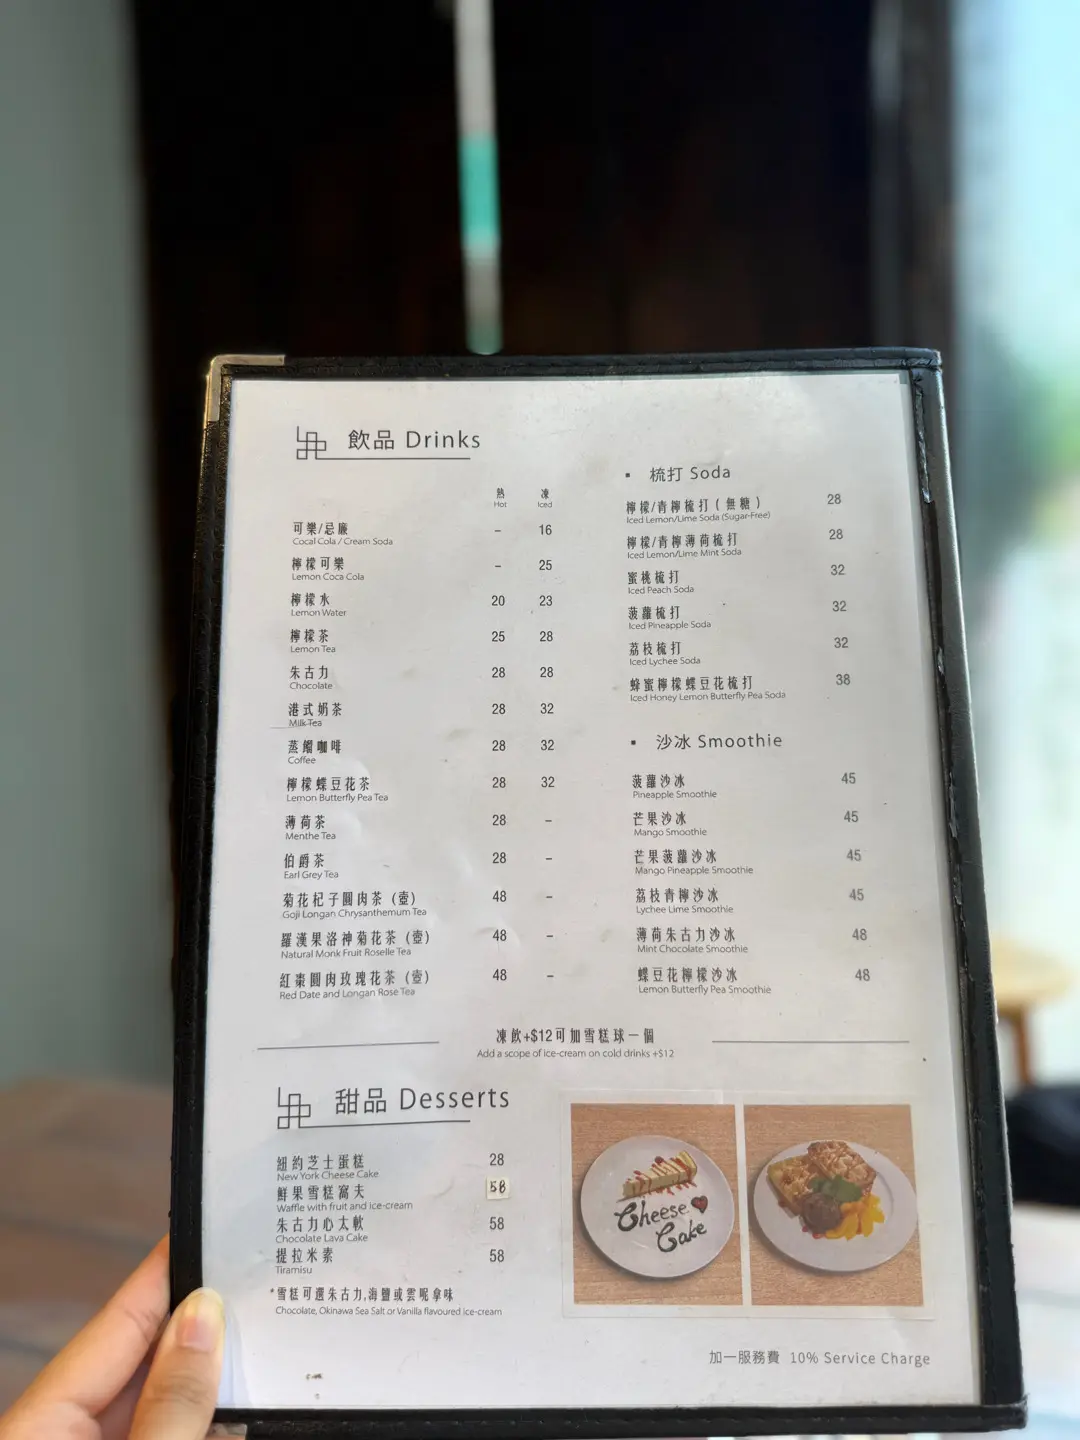 飲品 Drinks
熱 凍
Hot Iced
可樂/忌廉 – 16
Cocal Cola / Cream Soda
檸檬可樂 – 25
Lemon Coca Cola
檸檬水 20 23
Lemon Water
檸檬茶 25 28
Lemon Tea
朱古力 28 28
Chocolate
港式奶茶 28 32
Milk Tea
蒸餾咖啡 28 32
Coffee
檸檬蝶豆花茶 28 32
Lemon Butterfly Pea Tea
薄荷茶 28 –
Menthe Tea
伯爵茶 28 –
Earl Grey Tea
菊花杞子圓肉茶 (壺) 48 –
Goji Longan Chrysanthemum Tea
羅漢果洛神菊花茶 (壺) 48 –
Natural Monk Fruit Roselle Tea
紅棗圓肉玫瑰花茶 (壺) 48 –
Red Date and Longan Rose Tea
▪ 梳打 Soda
檸檬/青檸梳打 ( 無糖 ) 28
Iced Lemon/Lime Soda (Sugar-Free)
檸檬/青檸薄荷梳打 28
Iced Lemon/Lime Mint Soda
蜜桃梳打 32
Iced Peach Soda
菠蘿梳打 32
Iced Pineapple Soda
荔枝梳打 32
Iced Lychee Soda
蜂蜜檸檬蝶豆花梳打 38
Iced Honey Lemon Butterfly Pea Soda
▪ 沙冰 Smoothie
菠蘿沙冰 45
Pineapple Smoothie
芒果沙冰 45
Mango Smoothie
芒果菠蘿沙冰 45
Mango Pineapple Smoothie
荔枝青檸沙冰 45
Lychee Lime Smoothie
薄荷朱古力沙冰 48
Mint Chocolate Smoothie
蝶豆花檸檬沙冰 48
Lemon Butterfly Pea Smoothie
凍飲+$12可加雪糕球一個
Add a scope of ice-cream on cold drinks +$12
甜品 Desserts
紐約芝士蛋糕 28
New York Cheese Cake
鮮果雪糕窩夫 58
Waffle with fruit and ice-cream
朱古力心太軟 58
Chocolate Lava Cake
提拉米素 58
Tiramisu
*雪糕可選朱古力,海鹽或雲呢拿味
Chocolate, Okinawa Sea Salt or Vanilla flavoured ice-cream
Cheese
Cake
加一服務費 10% Service Charge